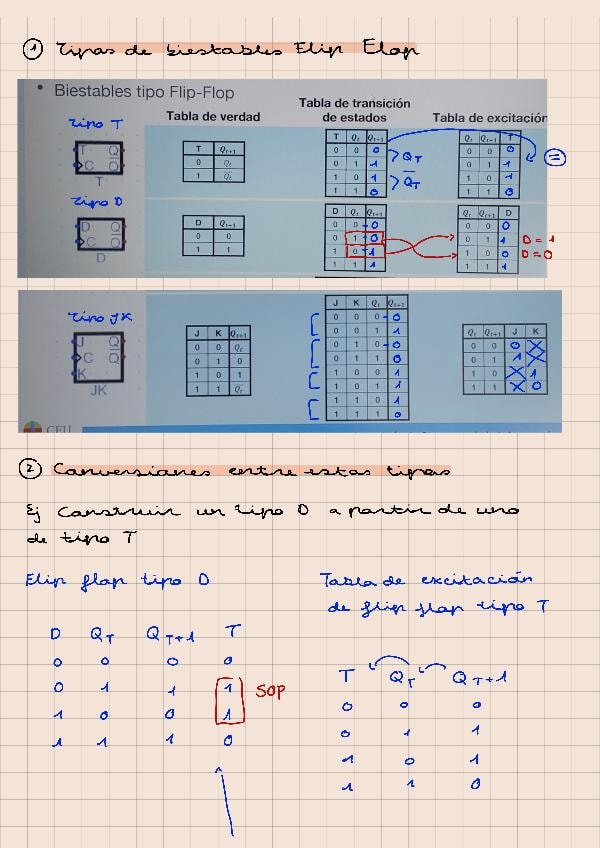 ① Tipos de biestables Flip Flop
• Biestables tipo Flip-Flop
Tabla de verdad
Tabla de transición
de estados
Tabla de excitación
Tipo T
T Q
C Q̅
T
T Qt+1
0 Qt
1 Q̅t
T Qt Qt+1
0 0 0
0 1 1
1 0 1
1 1 0
QT
Q̅T
Qt Qt+1 T
0 0 0
0 1 1
1 0 1
1 1 0
=
Tipo D
D Q
C Q̅
D
D Qt+1
0 0
1 1
D Qt Qt+1
0 0 0
0 1 0
1 0 1
1 1 1
Qt Qt+1 D
0 0 0
0 1 1 D = 1
1 0 0 D = 0
1 1 1
Tipo JK
J Q
C Q̅
K
JK
J K Qt+1
0 0 Qt
0 1 0
1 0 1
1 1 Q̅t
J K Qt Qt+1
0 0 0 0
0 0 1 1
0 1 0 0
0 1 1 0
1 0 0 1
1 0 1 1
1 1 0 1
1 1 1 0
Qt Qt+1 J K
0 0 0 X
0 1 1 X
1 0 X 1
1 1 X 0
CEU
② Conversiones entre estos tipos
Ej Construir un tipo D a partir de uno
de tipo T
Flip flop tipo D
D QT QT+1 T
0 0 0 0
0 1 1 1
1 0 0 1
1 1 1 0
SOP
Tabla de excitación
de flip flop tipo T
T QT QT+1
0 0 0
0 1 1
1 0 1
1 1 0